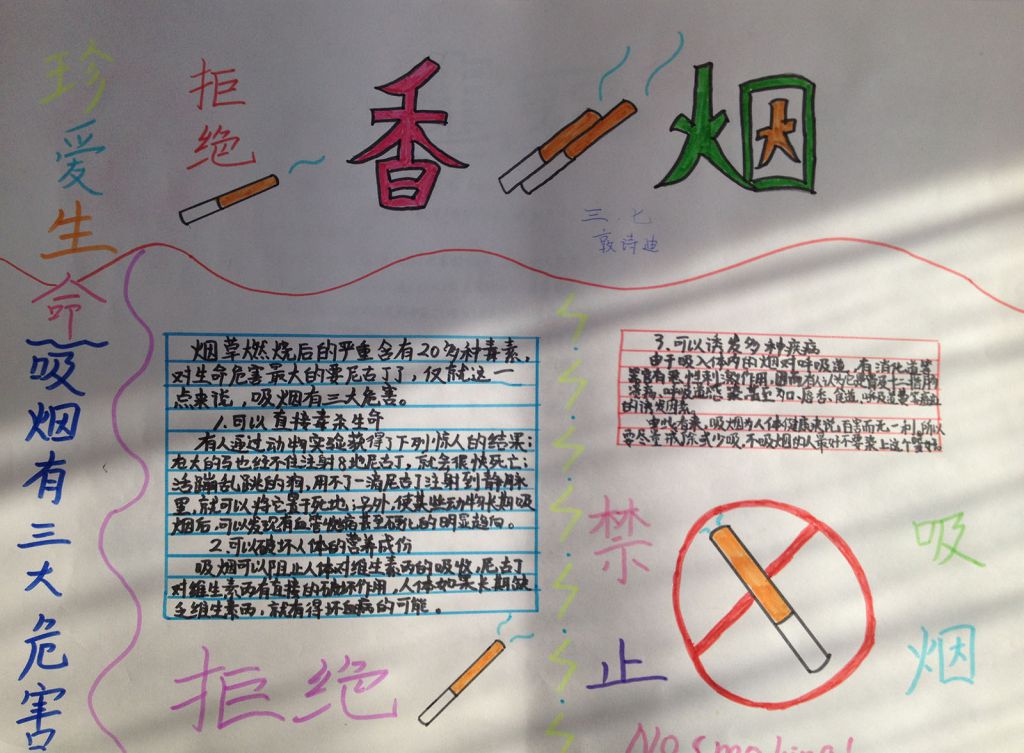 珍爱生命
拒绝
香烟
三.七
敦诗迪
吸烟有三大危害
烟草燃烧后的严重含有20多种毒素,
对生命危害最大的要尼古丁了,仅就这一
点来说,吸烟有三大危害。
1.可以直接毒杀生命
有人通过动物实验获得了下列惊人的结果:
老大的马也经不住注射8地尼古丁,就会很快死亡;
活蹦乱跳的狗,用不了一滴尼古丁注射到静脉
里,就可以将它置于死地;另外,使某些动物长期吸
烟后,可以发现有血管
的明显趋向。
2.可以破坏人体的营养成份
吸烟可以阻止人体对维生素丙的吸收,尼古丁
对维生素丙有直接的破坏作用,人体如果长期缺
乏维生素丙,就有得坏血病的可能。
3.可以诱发多种疾病
由于吸入体内的烟对呼吸道,有消化道等
的诱发因素。
由此看来,吸烟为人体健康来说,百害而无一利,所以
要尽量戒除或少吸,不吸烟的人最好不要染上这个嗜好
禁止吸烟
拒绝
No smoking!